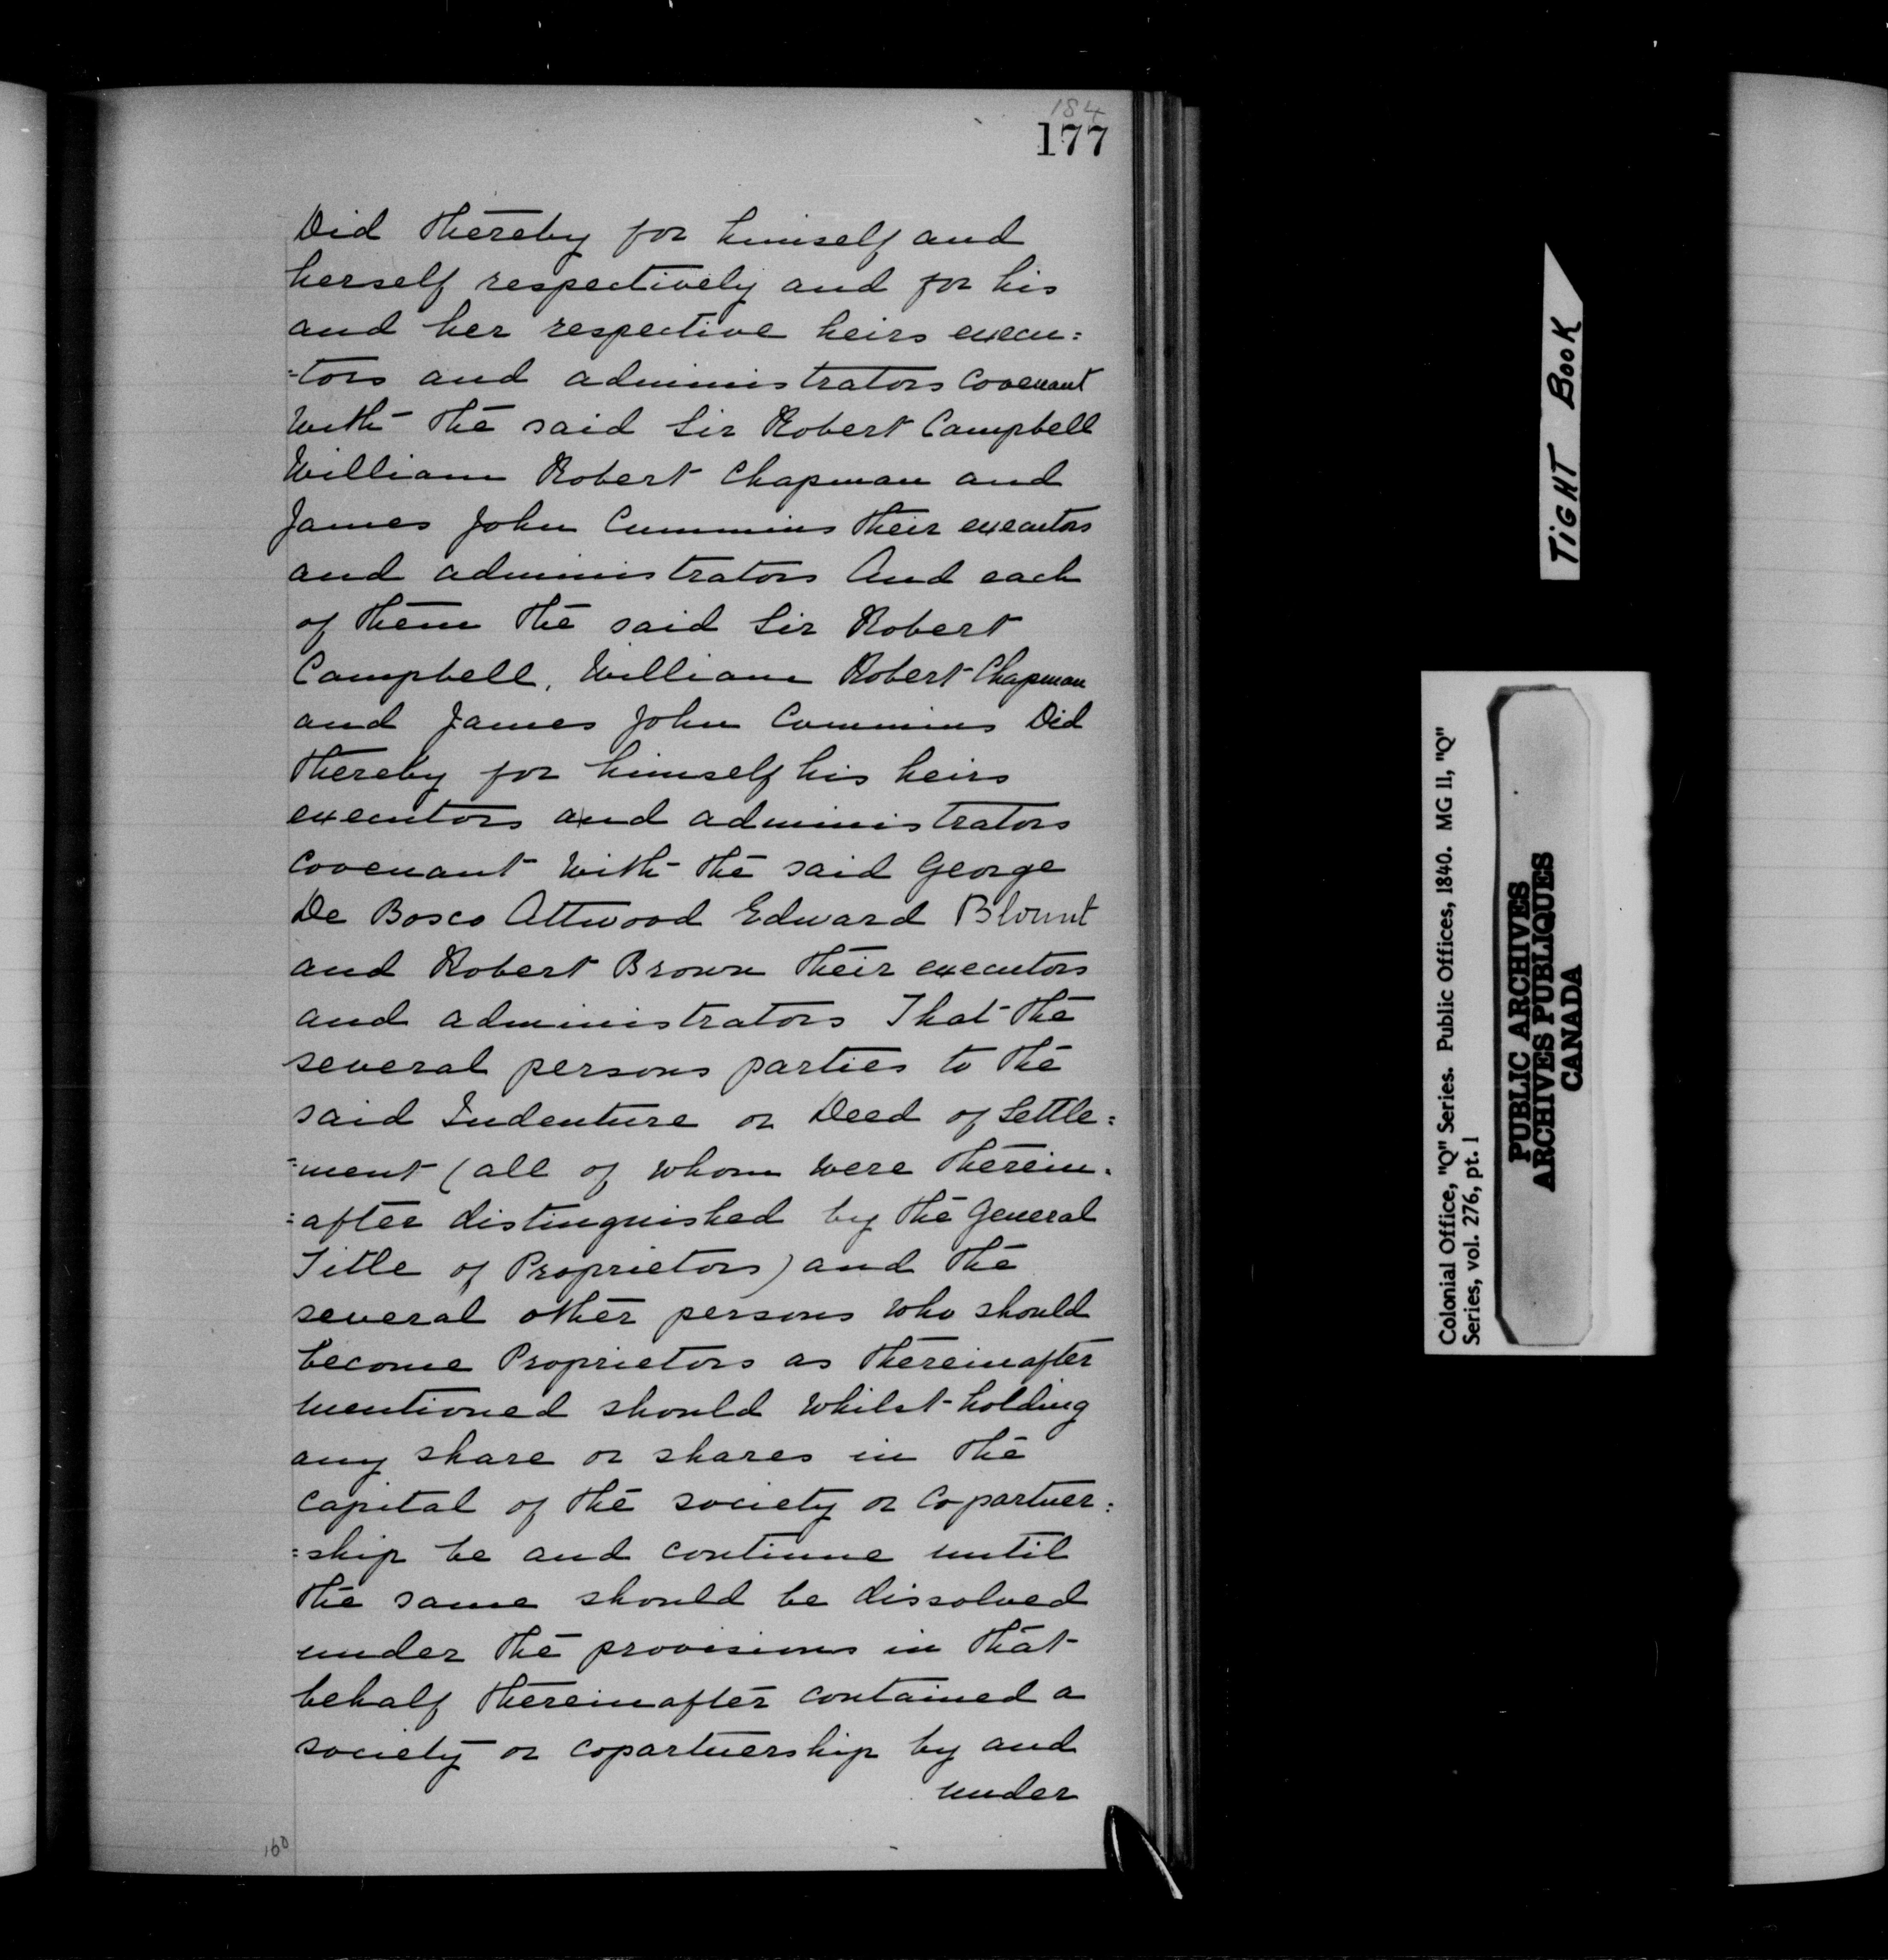 184
177
Did thereby for himself and
herself respectively and for his
and her respective heirs execu=
=tors and administrators Covenant
with the said Sir Robert Campbell
William Robert Chapman and
James John Cummins their executors
and administrators And each
of them the said Sir Robert
Campbell, William Robert Chapman
and James John Cummins Did
thereby for himself his heirs
executors and administrators
Covenant with the said George
De Bosco Attwood Edward Blount
and Robert Brown their executors
and administrators That the
several persons parties to the
said Indenture or Deed of Settle=
=ment (all of whom were therein=
=after distinguished by the General
Title of Proprietors) and the
several other persons who should
become Proprietors as thereinafter
mentioned should whilst holding
any share or shares in the
Capital of the society or Copartner=
=ship be and continue until
the same should be dissolved
under the provisions in that
behalf thereinafter contained a
society or copartnership by and
under
160
TIGHT BOOK
Colonial Office, "Q" Series. Public Offices, 1840. MG 11, "Q"
Series, vol. 276, pt. 1
PUBLIC ARCHIVES
ARCHIVES PUBLIQUES
CANADA